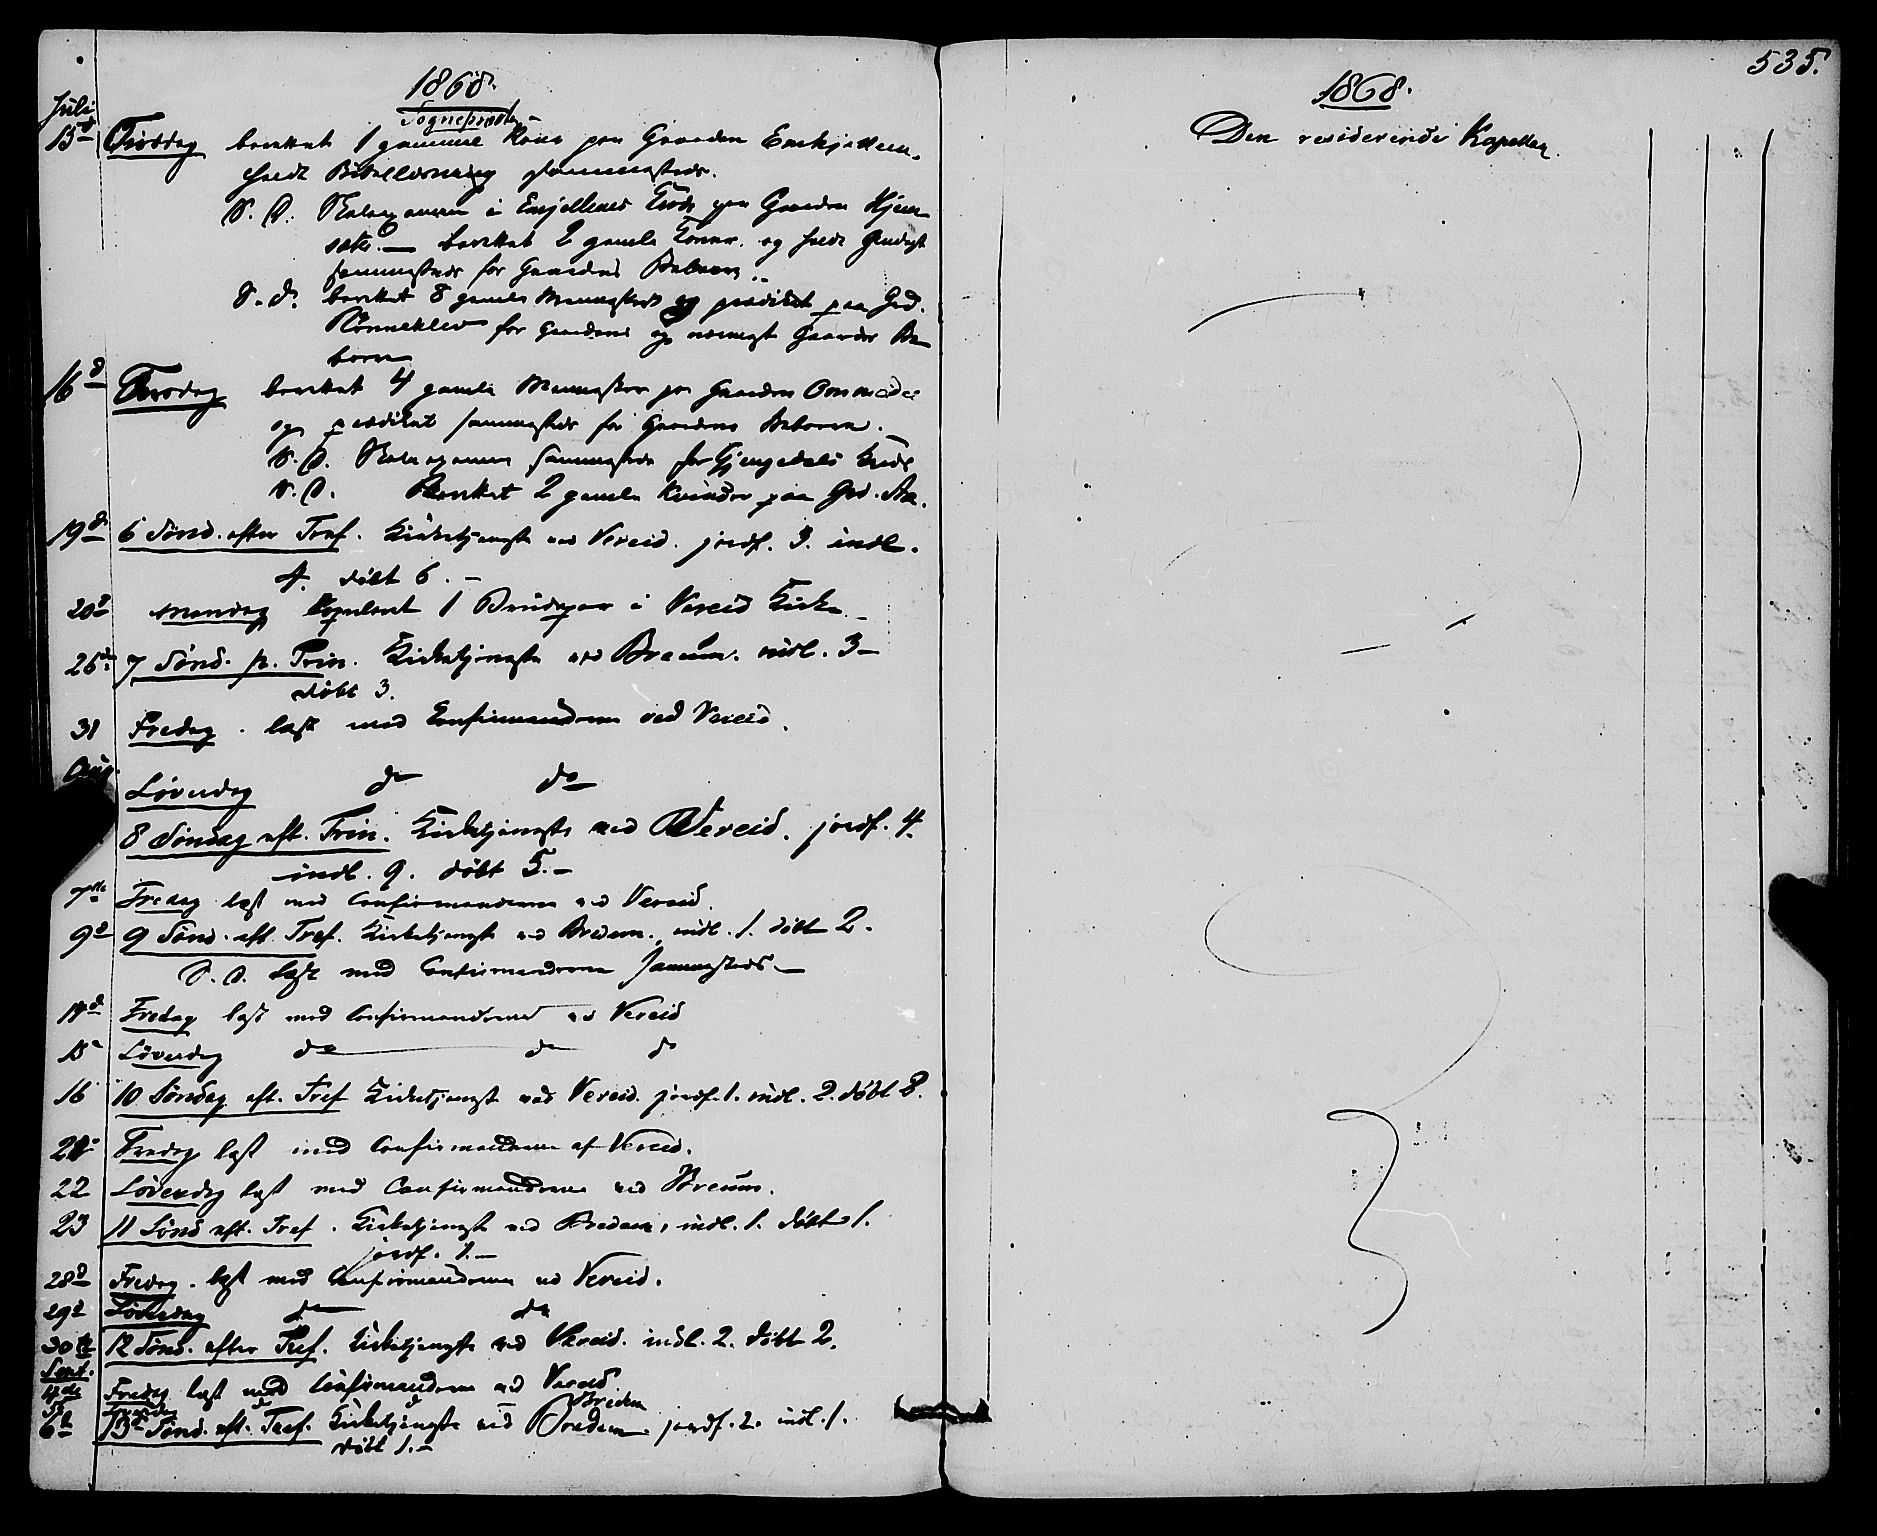 1868.
Sognepræsten
Juli
15d Tirsdag berettet 1 gammel Kone paa Gaarden
holdt Bibellæsning sammesteds.
S. D. Skoleexamen i Kreds paa Gaarden Hjem
sæter. — berettet 2 gamle Koner og holdt
sammesteds for Gaardens Beboere.
S. d. berettet 8 gamle Mennesker og prædiket paa Grd.
Rønneklev for Gaardens og nærmest Gaardes Be
boere
16d Torsdag berettet 4 gamle Mennesker paa Gaarden Ommedal
og prædiket sammesteds for Gaardens Beboere.
S. D. Skoleexamen sammesteds for Gjengedals Kreds
S. D. Berettet 2 gamle Kvinder paa Grd. Aa.
19d 6 Sønd. efter Tref. Kirketjeneste ved Vereid. jordf. 3. indl.
4. døbt 6. —
20d Mandag Copuleret 1 Brudepar i Vereid Kirke. —
26de 7 Sønd. p. Trin. Kirketjeneste ved Breum. indl. 3 —
døbt 3.
31 Fredag. læst med Confirmanderne ved Vereid.
Aug.
Løverdag do do
8 Søndag eft. Trin. Kirketjeneste ved Vereid. jordf. 4.
indl. 9. døbt 5. —
7de Fredag læst med Confirmanderne ved Vereid.
9d 9 Sønd. eft. Tref. Kirketjeneste ved Bredem. indl. 1. døbt 2.
S. D. læst med Confirmanderne sammesteds. —
14d Fredag læst med Confirmanderne ved Vereid
15d Løverdag do do do
16 10 Søndag eft. Tref Kirketjeneste ved Vereid. jordf. 1. indl. 2. døbt 8.
21 Fredag læst med Confirmanderne af Vereid.
22 Løverdag læst med Confirmanderne ved Breum.
23 11 Sønd eft. Tref. Kirketjeneste ved Bredem, indl. 1. døbt 1.
jordf. 1. —
28d Fredag. læst med Confirmanderne ved Vereid.
29d Løverdag do do
30te 12 Sønd. efter Tref. Kirketjeneste ved Vereid. indl. 2. døbt 2.
Sept.
4de Fredag læst med Confirmanderne ved Vereid
5 Løverdag d d Bredem
6d 13d Sønd. eft. Tref. Kirketjeneste ved Bredem jordf. 2. indl. 1.
døbt 1. —
535.
1868.
Den residerende Kapellan.